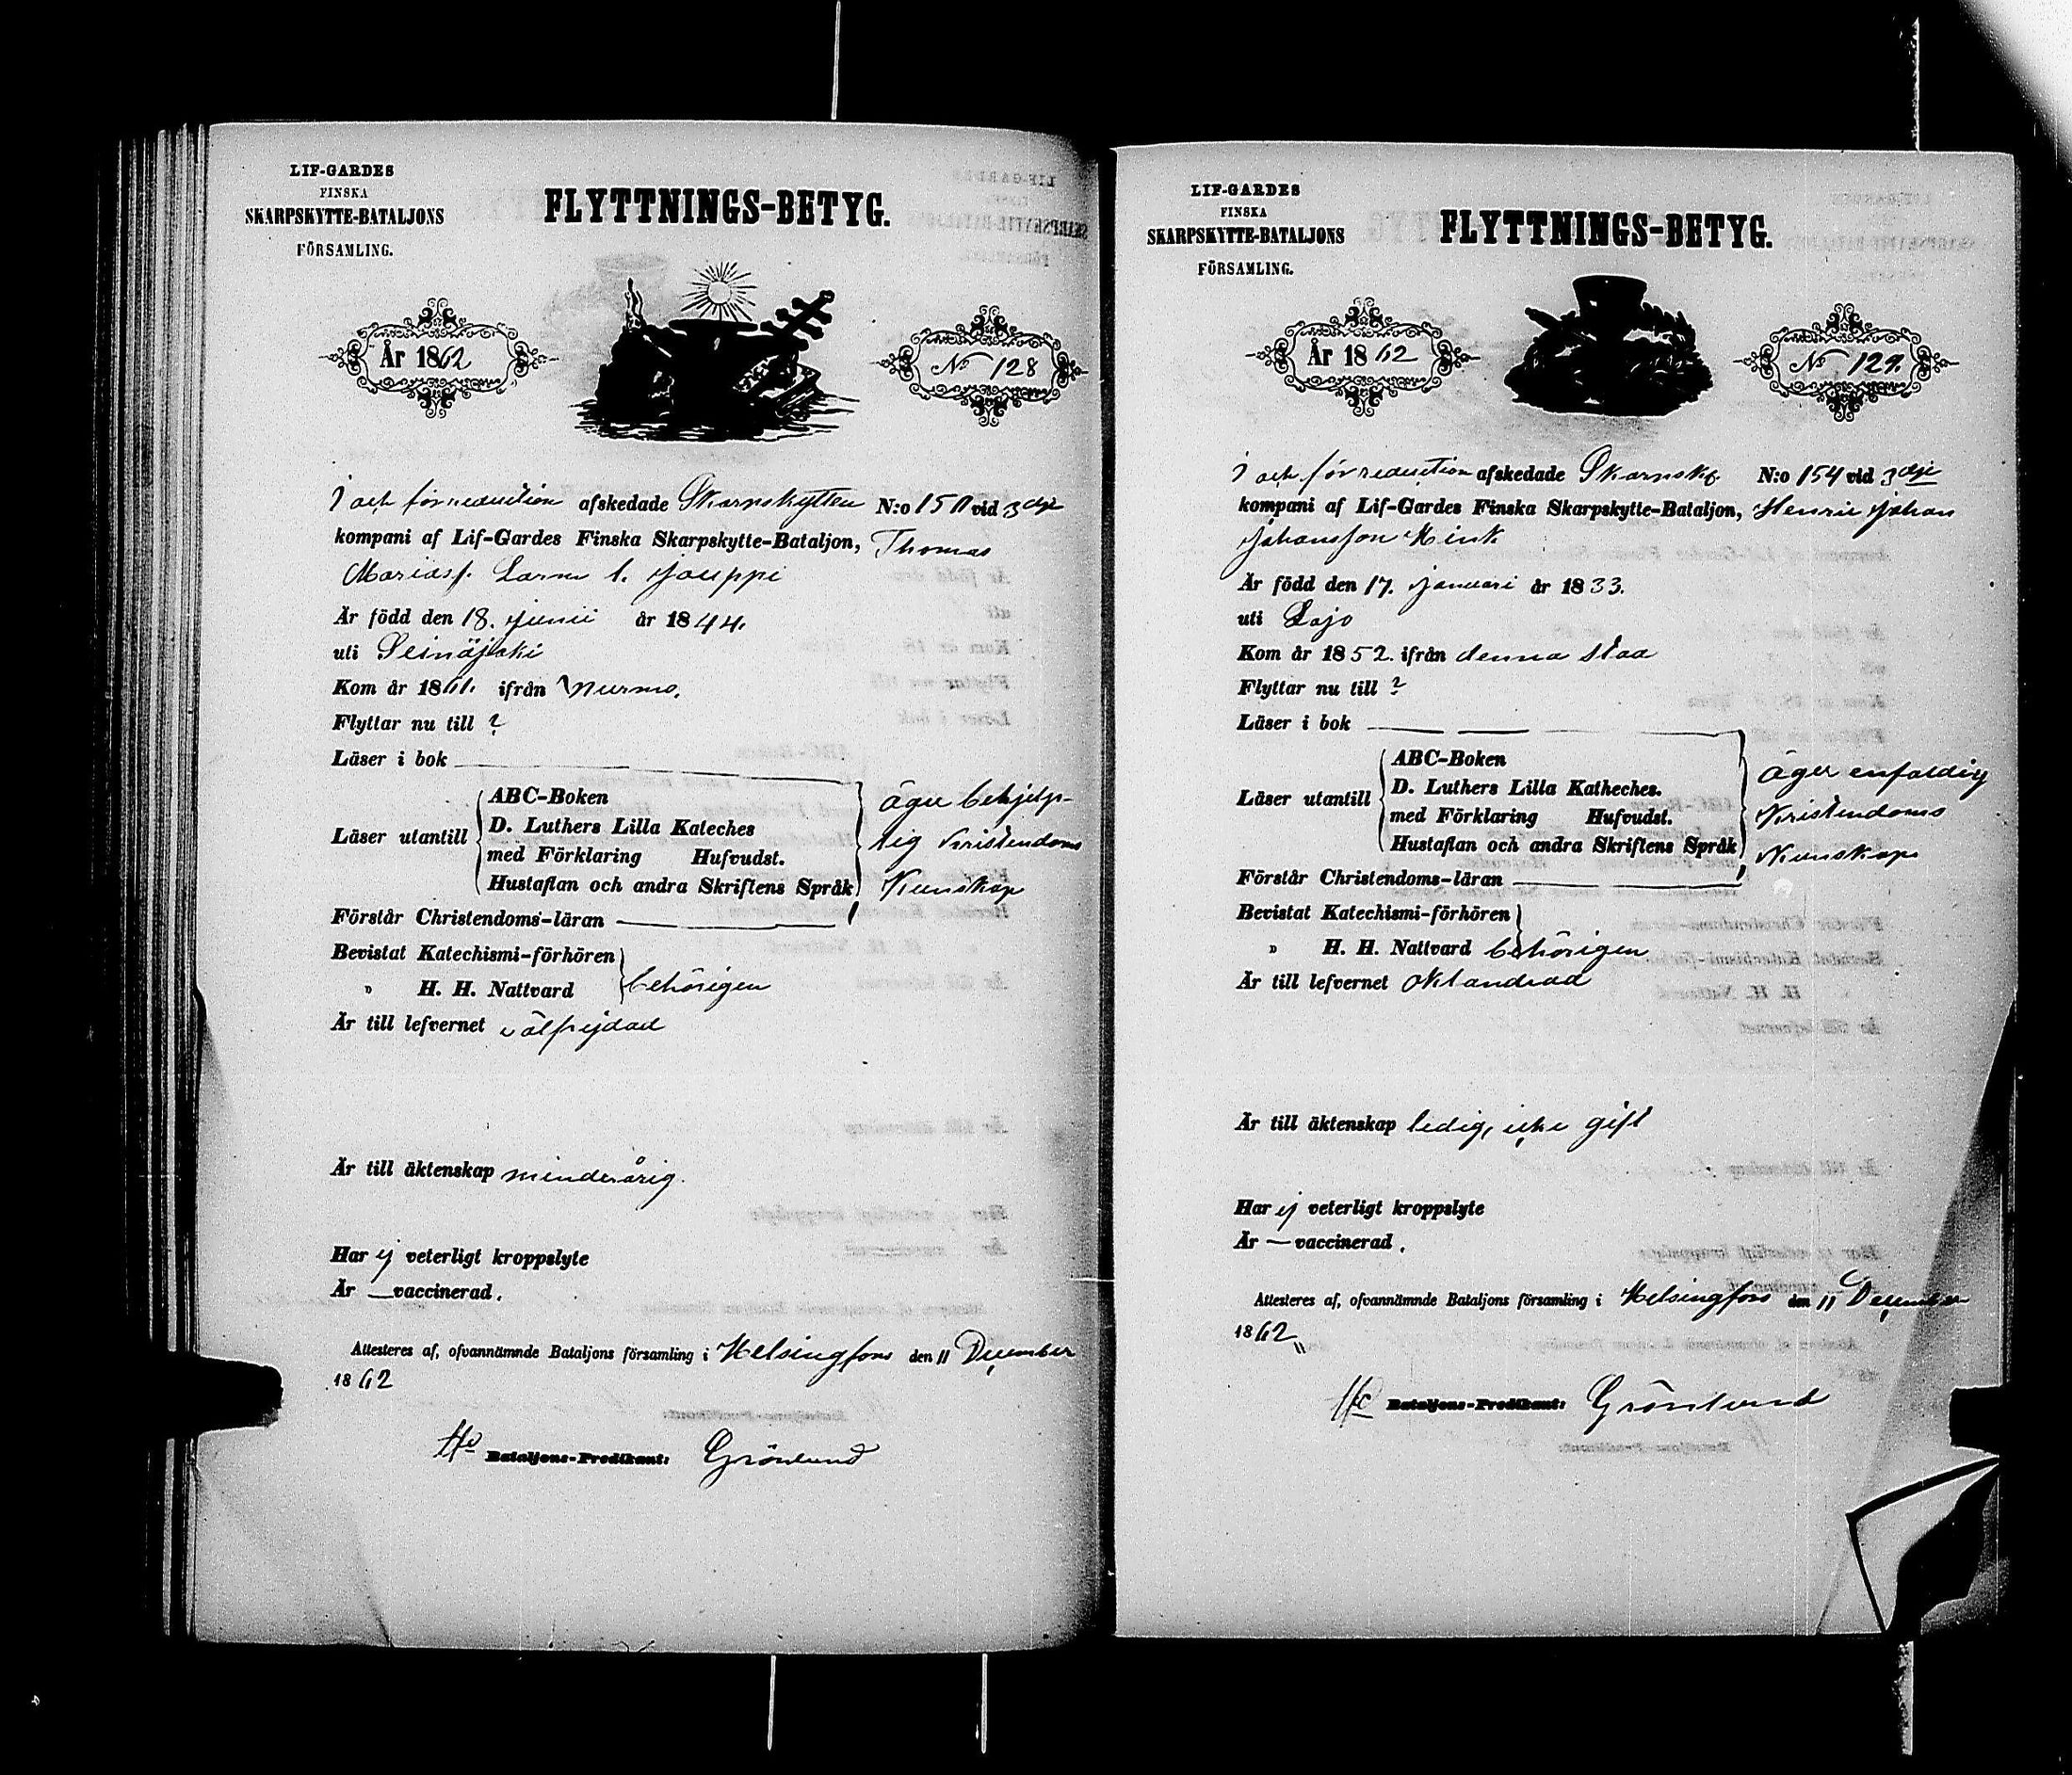 LIF-GARDES
FINSKA
SKARPSKYTTE-BATALJONS
FÖRSAMLING.
FLYTTNINGS-BETYG.
År 1862
No 128
afskedade Skarpskytten N:o vid 3dje
kompani af Lif-Gardes Finska Skarpskytte-Bataljon, Thomas
Mariasf. Jouppi
Är född den 18. Junii år 1844.
uti Seinäjoki
Kom år 1861. ifrån Nurmo.
Flyttar nu till ?
Läser i bok
Läser utantill
ABC-Boken
D. Luthers Lilla Kateches
med Förklaring Hufvudst.
Hustaflan och andra Skriftens Språk
äger behjelp-
lig Kristendoms
Kunskap
Förstår Christendoms-läran
Bevistat Katechismi-förhören
" H. H. Nattvard behörigen
Är till lefvernet välfrejdad
Är till äktenskap minderårig.
Har ej veterligt kroppslyte
Är — vaccinerad.
Attesteres af, ofvannämnde Bataljons församling i Helsingfors den 11 December
1862
Bataljons-Predikant: Grönlund
LIF-GARDES
FINSKA
SKARPSKYTTE-BATALJONS
FÖRSAMLING.
FLYTTNINGS-BETYG.
År 1862
No 129.
afskedade Skarpsk. N:o 154 vid 3dje
kompani af Lif-Gardes Finska Skarpskytte-Bataljon, Henric Johan
Johansson Hink
Är född den 17. Januari år 1833.
uti Lojo
Kom år 1852. ifrån denna stad
Flyttar nu till ?
Läser i bok
Läser utantill
ABC-Boken
D. Luthers Lilla Katheches.
med Förklaring Hufvudst.
Hustaflan och andra Skriftens Språk
äger enfaldig
Kristendoms
Kunskap
Förstår Christendoms-läran
Bevistat Katechismi-förhören
" H. H. Nattvard behörigen
Är till lefvernet oklandrad
Är till äktenskap ledig, icke gift
Har ej veterligt kroppslyte
Är — vaccinerad.
Attesteres af, ofvannämnde Bataljons församling i Helsingfors den 11 December
1862
Bataljons-Predikant: Grönlund